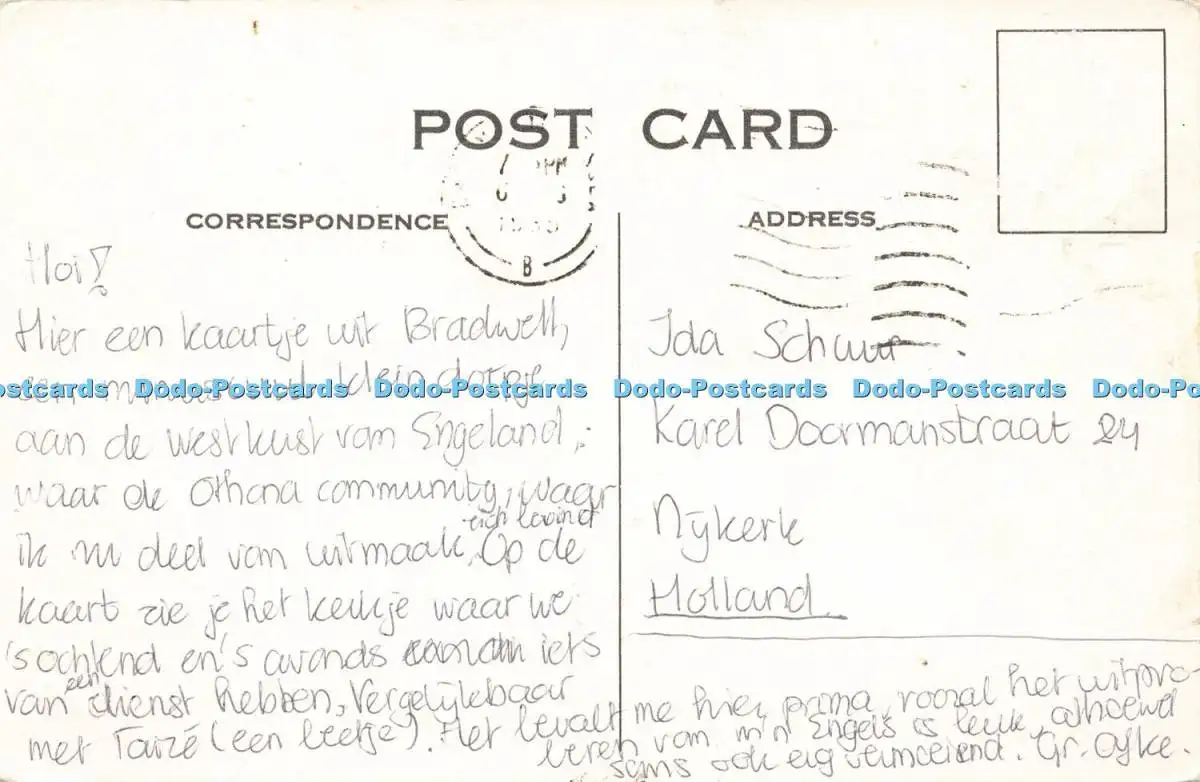 POST CARD
CORRESPONDENCE
ADDRESS
B
Hoi!
Hier een kaartje uit Bradwell,
een klein dorpje
aan de westkust van Engeland,
waar de Othona community, waar
zich bevindt
ik nu deel van uitmaak. Op de
kaart zie je het kerkje waar we
's ochtend en 's avonds iets
van een dienst hebben, Vergelijkbaar
met Taizé (een beetje). Het bevalt me hier prima, vooral het uitpro-
beren van m'n Engels is leuk, alhoewel
soms ook erg vermoeiend. Gr. Afke.
Ida Schuur
Karel Doormanstraat 24
Nijkerk
Holland
Dodo-Postcards Dodo-Postcards Dodo-Postcards Dodo-Postcards